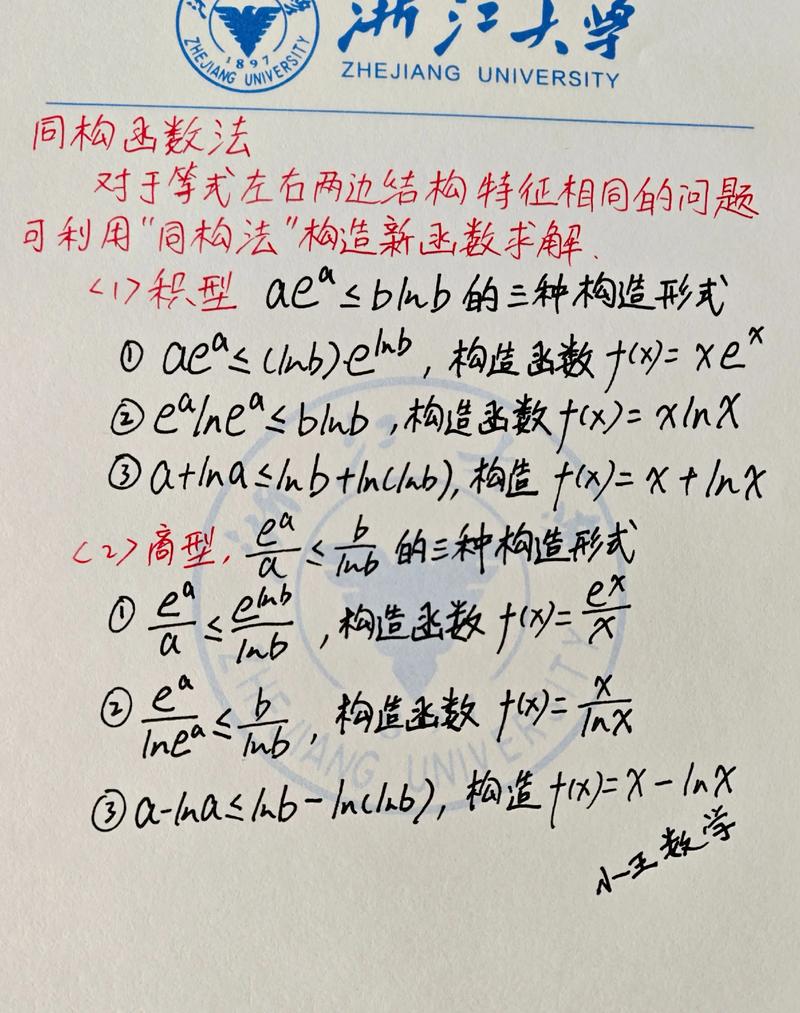 浙江大学
ZHEJIANG UNIVERSITY
1897
ZHEJIANG UNIVERSITY
同构函数法
对于等式左右两边结构特征相同的问题
可利用“同构法”构造新函数求解.
(1) 积型 ae^a ≤ blnb 的三种构造形式
① ae^a ≤ (lnb)·e^{lnb}, 构造函数 f(x)= xe^x
② e^a lne^a ≤ blnb, 构造函数 f(x)= xlnx
③ a+lna ≤ lnb+ln(lnb), 构造 f(x)= x+lnx
(2) 商型, e^a/a ≤ b/lnb 的三种构造形式
① e^a/a ≤ e^{lnb}/lnb, 构造函数 f(x)= e^x/x
② e^a/lne^a ≤ b/lnb, 构造函数 f(x)= x/lnx
③ a-lna ≤ lnb-ln(lnb), 构造 f(x)= x-lnx
小王数学
ZHEJIANG UNIVERSITY